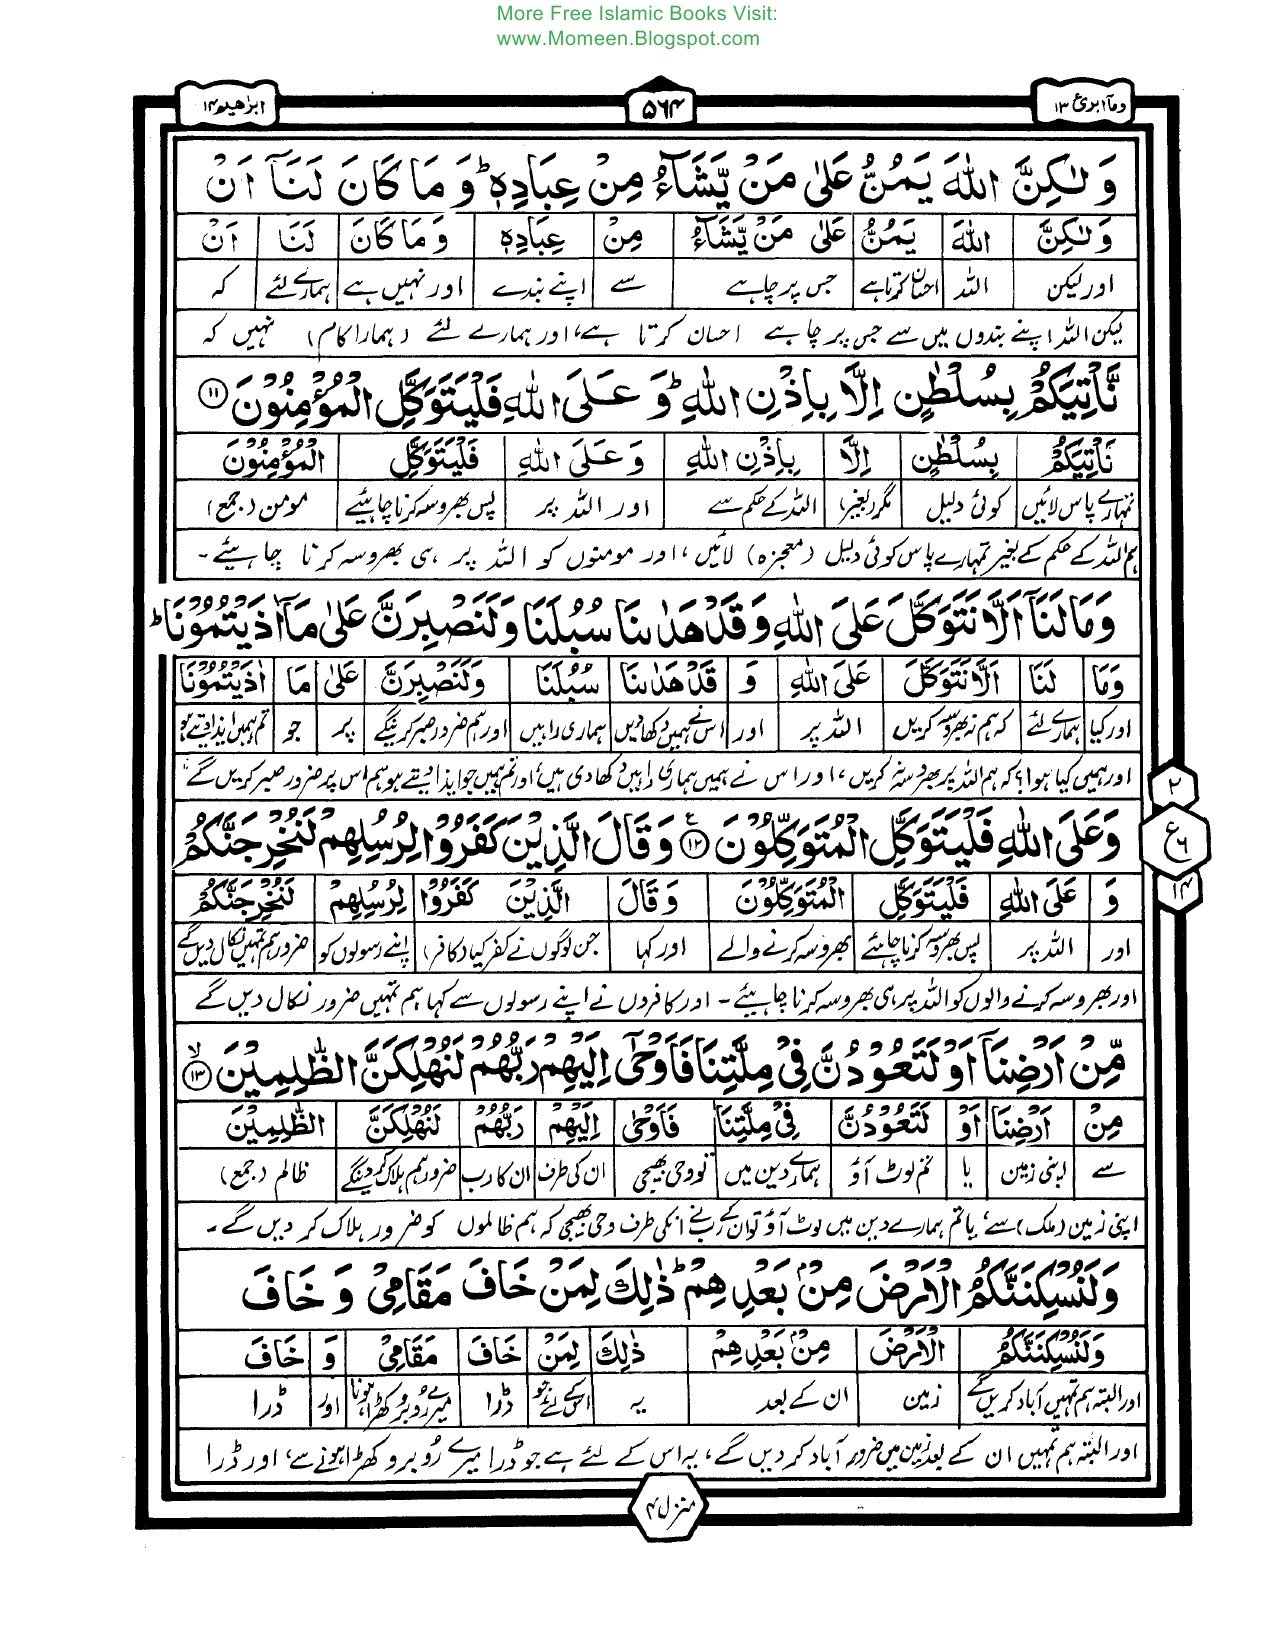 More Free Islamic Books Visit:
www.Momeen.Blogspot.com
ومآ ابرئ ١٣ ۵۶۴ ابرٰهيم ١٤
وَلٰكِنَّ اللّٰهَ يَمُنُّ عَلٰى مَنْ يَّشَآءُ مِنْ عِبَادِهٖ ؕ وَمَا كَانَ لَنَآ اَنْ
وَلٰكِنَّ اللّٰهَ يَمُنُّ عَلٰى مَنْ يَّشَآءُ مِنْ عِبَادِهٖ وَمَا كَانَ لَنَا اَنْ
اور لیکن اللہ احسان کرتا ہے جس پر چاہے سے اپنے بندے اور نہیں ہے ہمارے لئے کہ
لیکن اللہ اپنے بندوں میں سے جس پر چاہے احسان کرتا ہے، اور ہمارے لئے (ہمارا کام) نہیں کہ
نَّاْتِيَكُمْ بِسُلْطٰنٍ اِلَّا بِاِذْنِ اللّٰهِ ؕ وَعَلَى اللّٰهِ فَلْيَتَوَكَّلِ الْمُؤْمِنُوْنَ ⑪
نَاْتِيَكُمْ بِسُلْطٰنٍ اِلَّا بِاِذْنِ اللّٰهِ وَعَلَى اللّٰهِ فَلْيَتَوَكَّلِ الْمُؤْمِنُوْنَ
تمہارے پاس لائیں کوئی دلیل مگر (بغیر) اللہ کے حکم سے اور اللہ پر پس بھروسہ کرنا چاہیئے مومن (جمع)
ہم اللہ کے حکم کے بغیر تمہارے پاس کوئی دلیل (معجزہ) لائیں، اور مومنوں کو اللہ پر ہی بھروسہ کرنا چاہیئے۔
وَمَا لَنَآ اَلَّا نَتَوَكَّلَ عَلَى اللّٰهِ وَقَدْ هَدٰىنَا سُبُلَنَا وَلَنَصْبِرَنَّ عَلٰى مَآ اٰذَيْتُمُوْنَا ؕ
وَمَا لَنَا اَلَّا نَتَوَكَّلَ عَلَى اللّٰهِ وَ قَدْ هَدٰىنَا سُبُلَنَا وَلَنَصْبِرَنَّ عَلٰى مَا اٰذَيْتُمُوْنَا
اور کیا ہمارے لئے کہ ہم نہ بھروسہ کریں اللہ پر اور اس نے ہمیں دکھادیں ہماری راہیں اور ہم ضرور صبر کرینگے پر جو تم ہمیں ایذا دیتے ہو
اور ہمیں کیا ہوا؟ کہ ہم اللہ پر بھروسہ نہ کریں، اور اس نے ہمیں ہماری راہیں دکھا دی ہیں، اور تم ہمیں جو ایذا دیتے ہو ہم اس پر ضرور صبر کریں گے،
وَعَلَى اللّٰهِ فَلْيَتَوَكَّلِ الْمُتَوَكِّلُوْنَ ⑫ وَقَالَ الَّذِيْنَ كَفَرُوْا لِرُسُلِهِمْ لَنُخْرِجَنَّكُمْ
٢
ع ٦
١٤
وَ عَلَى اللّٰهِ فَلْيَتَوَكَّلِ الْمُتَوَكِّلُوْنَ وَقَالَ الَّذِيْنَ كَفَرُوْا لِرُسُلِهِمْ لَنُخْرِجَنَّكُمْ
اور اللہ پر پس بھروسہ کرنا چاہیئے بھروسہ کرنے والے اور کہا جن لوگوں نے کفر کیا (کافر) اپنے رسولوں کو ضرور ہم تمہیں نکال دیں گے
اور بھروسہ کرنے والوں کو اللہ پر ہی بھروسہ کرنا چاہیئے۔ اور کافروں نے اپنے رسولوں سے کہا ہم تمہیں ضرور نکال دیں گے
مِّنْ اَرْضِنَآ اَوْ لَتَعُوْدُنَّ فِيْ مِلَّتِنَا فَاَوْحٰٓى اِلَيْهِمْ رَبُّهُمْ لَنُهْلِكَنَّ الظّٰلِمِيْنَ ⑬ لا
مِنْ اَرْضِنَا اَوْ لَتَعُوْدُنَّ فِيْ مِلَّتِنَا فَاَوْحٰى اِلَيْهِمْ رَبُّهُمْ لَنُهْلِكَنَّ الظّٰلِمِيْنَ
سے اپنی زمین یا تم لوٹ آؤ ہمارے دین میں تو وحی بھیجی ان کی طرف ان کا رب ضرور ہم ہلاک کر دینگے ظالم (جمع)
اپنی زمین (ملک) سے، یا تم ہمارے دین میں لوٹ آؤ تو ان کے رب نے انکی طرف وحی بھیجی کہ ہم ظالموں کو ضرور ہلاک کر دیں گے۔
وَلَنُسْكِنَنَّكُمُ الْاَرْضَ مِنْۢ بَعْدِهِمْ ؕ ذٰلِكَ لِمَنْ خَافَ مَقَامِيْ وَخَافَ
وَلَنُسْكِنَنَّكُمُ الْاَرْضَ مِنْۢ بَعْدِهِمْ ذٰلِكَ لِمَنْ خَافَ مَقَامِيْ وَ خَافَ
اور البتہ ہم تمہیں آباد کریں گے زمین ان کے بعد یہ اس کے لئے جو ڈرا میرے روبرو کھڑا ہونا اور ڈرا
اور البتہ ہم تمہیں ان کے بعد زمین میں ضرور آباد کر دیں گے، یہ اس کے لئے ہے جو ڈرا میرے رُوبرو کھڑا ہونے سے، اور ڈرا
منزل ٣